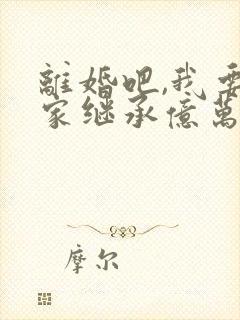 離婚吧,我要
家继承億萬
摩尔